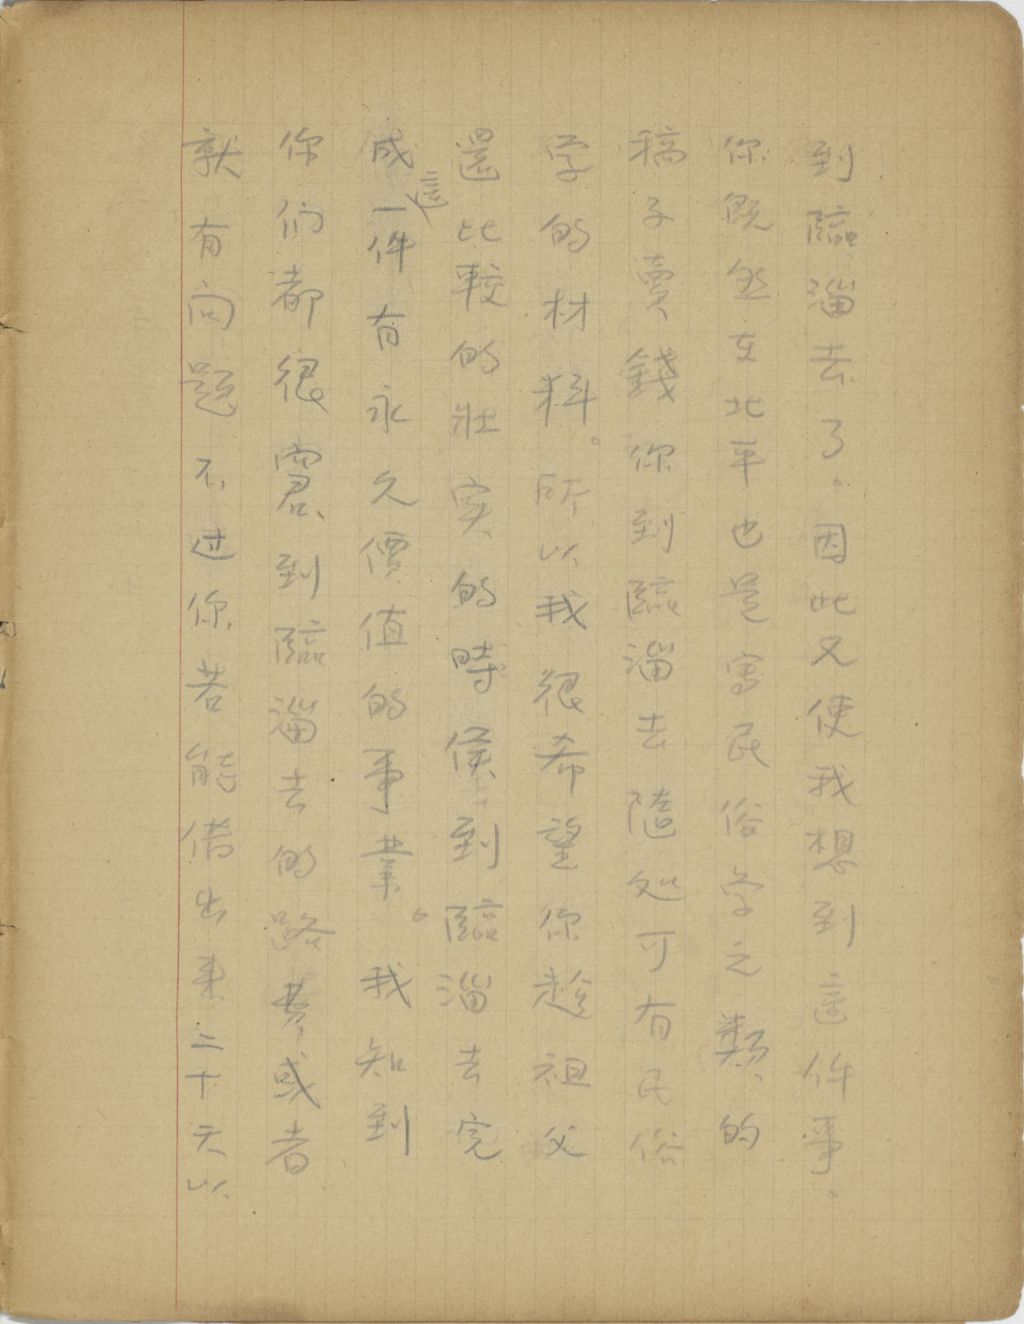 到臨淄去了。因此又使我想到這件事。
你既然在北平也是寫民俗学之類的
稿子賣錢你到臨淄去随处可有民俗
学的材料。所以我很希望你趁祖父
還比較的壯实的時候到臨淄去完
成這一件有永久價值的事業。我知到
你们都很窘到臨淄去的路費或者
就有向题不过你若能借出来二十天以